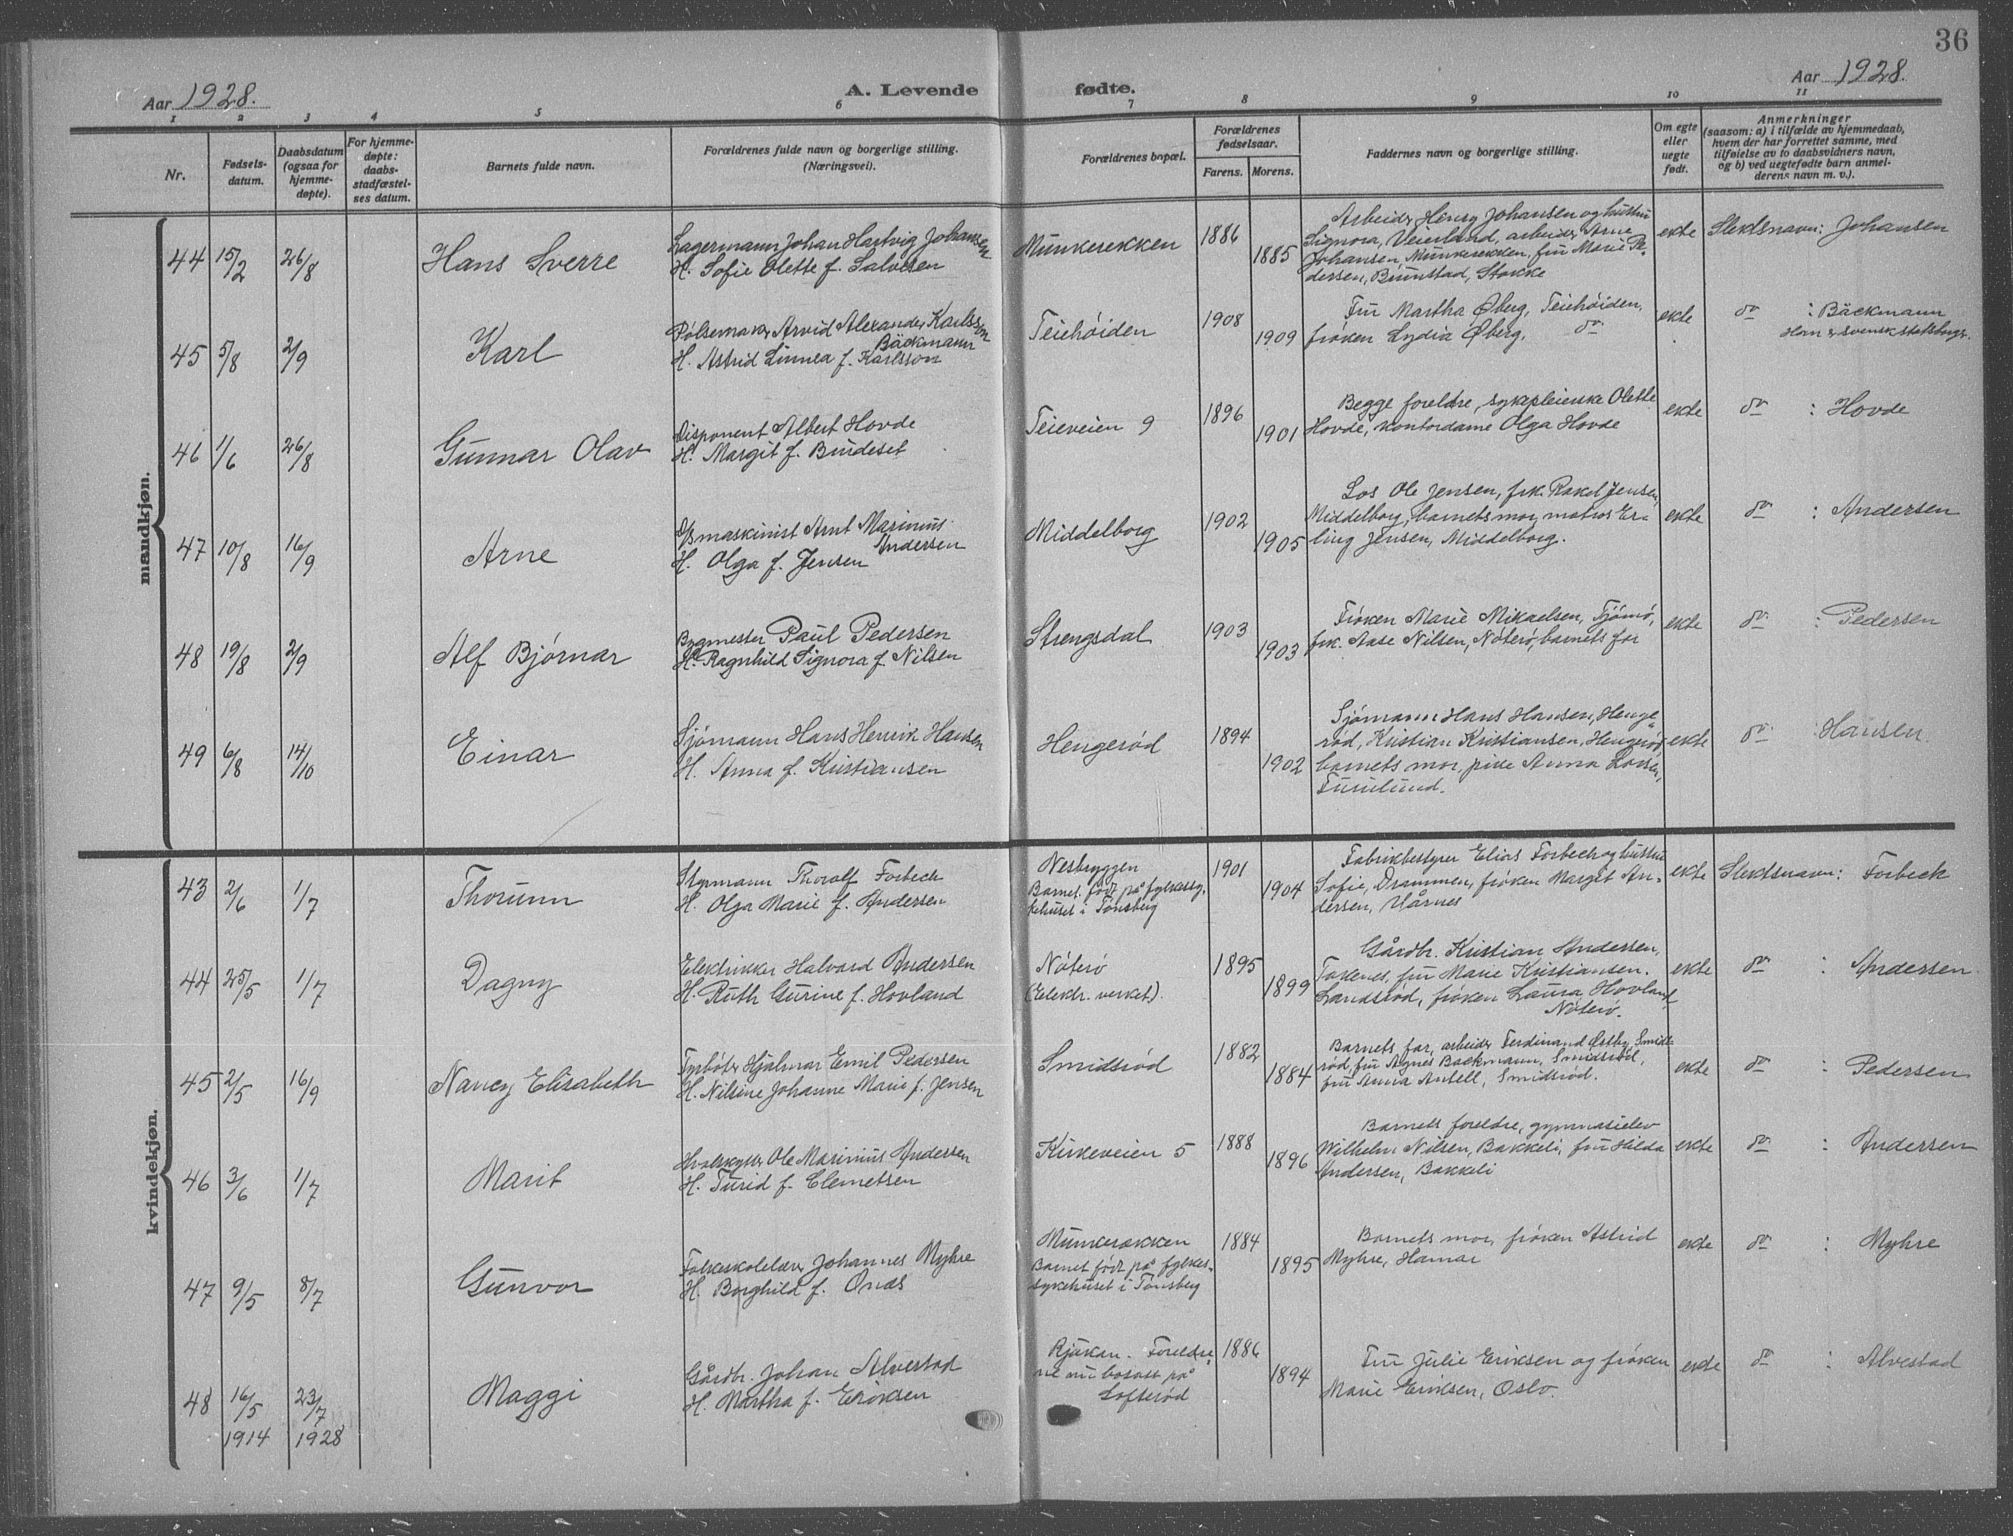 36
Aar 1928.
A. Levende fødte.
Aar 1928.
1 2 3 4 5 6 7 8 9 10 11
Nr.
Fødsels-
datum.
Daabsdatum
(ogsaa for
hjemme-
døpte).
For hjemme-
døpte:
daabs-
stadfæstel-
ses datum.
Barnets fulde navn.
Forældrenes fulde navn og borgerlige stilling.
(Næringsvei).
Forældrenes bopæl.
Forældrenes
fødselsaar.
Farens. Morens.
Faddernes navn og borgerlige stilling.
Om egte
eller
uegte
født.
Anmerkninger
(saasom: a) i tilfælde av hjemmedaab,
hvem der har forrettet samme, med
tilføielse av to daabsvidners navn,
og b) ved uegtefødte barn anmel-
derens navn m. v.).
mandkjøn.
44 15/2 26/8 Hans Sverre
Lagermann Johan Hartvig Johansen
H. Sofie Olette f. Salvesen
Munkerekken
1886 1885
Arbeider Henry Johansen og hustru
Signora, Veierland, arbeider Arne
Johansen, Munkerekken, fru Marie Pe-
dersen, Brunstad, Stokke
ekte Slektsnavn: Johansen
45 5/8 2/9 Karl
Pølsemaker Arvid Alexander Karlsson
Bäckmann
H. Astrid Linnea f. Karlsson
Teiehöiden
1908 1909
Fru Martha Øberg, Teiehöiden,
frøken Lydia Øberg, do
ekte do : Bäckmann
Han er svensk statsborger.
46 1/6 26/8 Gunnar Olav
Disponent Albert Hovde
H. Margit f. Bindeset
Teieveien 9
1896 1901
Begge foreldre, sykepleierske Olette
Hovde, kontordame Olga Hovde
ekte do : Hovde
47 10/8 16/9 Arne
D/smaskinist Arnt Marinius
Andersen
H. Olga f. Jensen
Middelborg
1902 1905
Los Ole Jensen, frk. Rakel Jensen,
Middelborg, barnets mor, matros Er-
ling Jensen, Middelborg.
ekte do : Andersen
48 19/8 2/9 Alf Bjørnar
Bygmester Paul Pedersen
H. Ragnhild Signora f. Nilsen
Strengsdal
1903 1903
Frøken Marie Mikaelsen, Tjømø,
frk. Aase Nilsen, Nøterø, barnets far
ekte do : Pedersen
49 6/8 14/10 Einar
Sjømann Hans Henrik Hansen
H. Anna f. Kristiansen
Hengerød
1894 1902
Sjømann Hans Hansen, Henge-
rød, Kristian Kristiansen, Hengerød
barnets mor, pike Anna Larsen,
Furulund.
ekte do : Hansen.
kvindekjøn.
43 2/6 1/7 Thorunn
Styrmann Thoralf Forbech
H. Olga Marie f. Andersen
Nesbryggen
Barnet født på fylkessy-
kehuset i Tønsberg
1901 1904
Fabrikbestyrer Elias Forbech og hustru
Sofie, Drammen, frøken Margit An-
dersen, Vårnes
ekte Slektsnavn: Forbech
44 25/5 1/7 Dagny
Elektriker Halvard Andersen
H. Ruth Gurine f. Hovland
Nøterø
(Elektr. verket).
1895 1899
Gårdbr. Kristian Andersen,
fru Marie Kristiansen.
frøken Laura Hovland
Nøterø.
ekte do : Andersen.
45 2/5 16/9 Nancy Elisabeth
Hjalmar Emil Pedersen
H. Nilsine Johanne Marie f. Jensen
Smidsrød
1882 1884
Barnets far, arbeider Ferdinand Østby, Smids-
rød, fru Agnes Backmann, Smidsrød,
fru Anna Antell, Smidsrød.
ekte do : Pedersen
46 3/6 1/7 Marit
Hvalskytter Ole Marinius Andersen
H. Turid f. Clemetsen
Kirkeveien 5
1888 1896
Barnets foreldre, gymnasielev
Wilhelm Nilsen, Bakkeli, fru Hilda
Andersen, Bakkeli
ekte do : Andersen
47 9/5 8/7 Gunvor
Folkeskolelærer Johannes Myhre
H. Borghild f. Onas
Munkerekken
Barnet født på fylkes-
sykehuset i Tønsberg
1884 1895
Barnets mor, frøken Astrid
Myhre, Hamar
ekte do : Myhre
48 16/5 1914 23/7 1928 Maggi
Gårdbr. Johan Alvestad
H. Martha f. Eriksen
Rjukan. Foreldre-
ne nu bosatt på
Lofterød
1886 1894
Fru Julie Eriksen og frøken
Marie Eriksen, Oslo.
ekte do : Alvestad